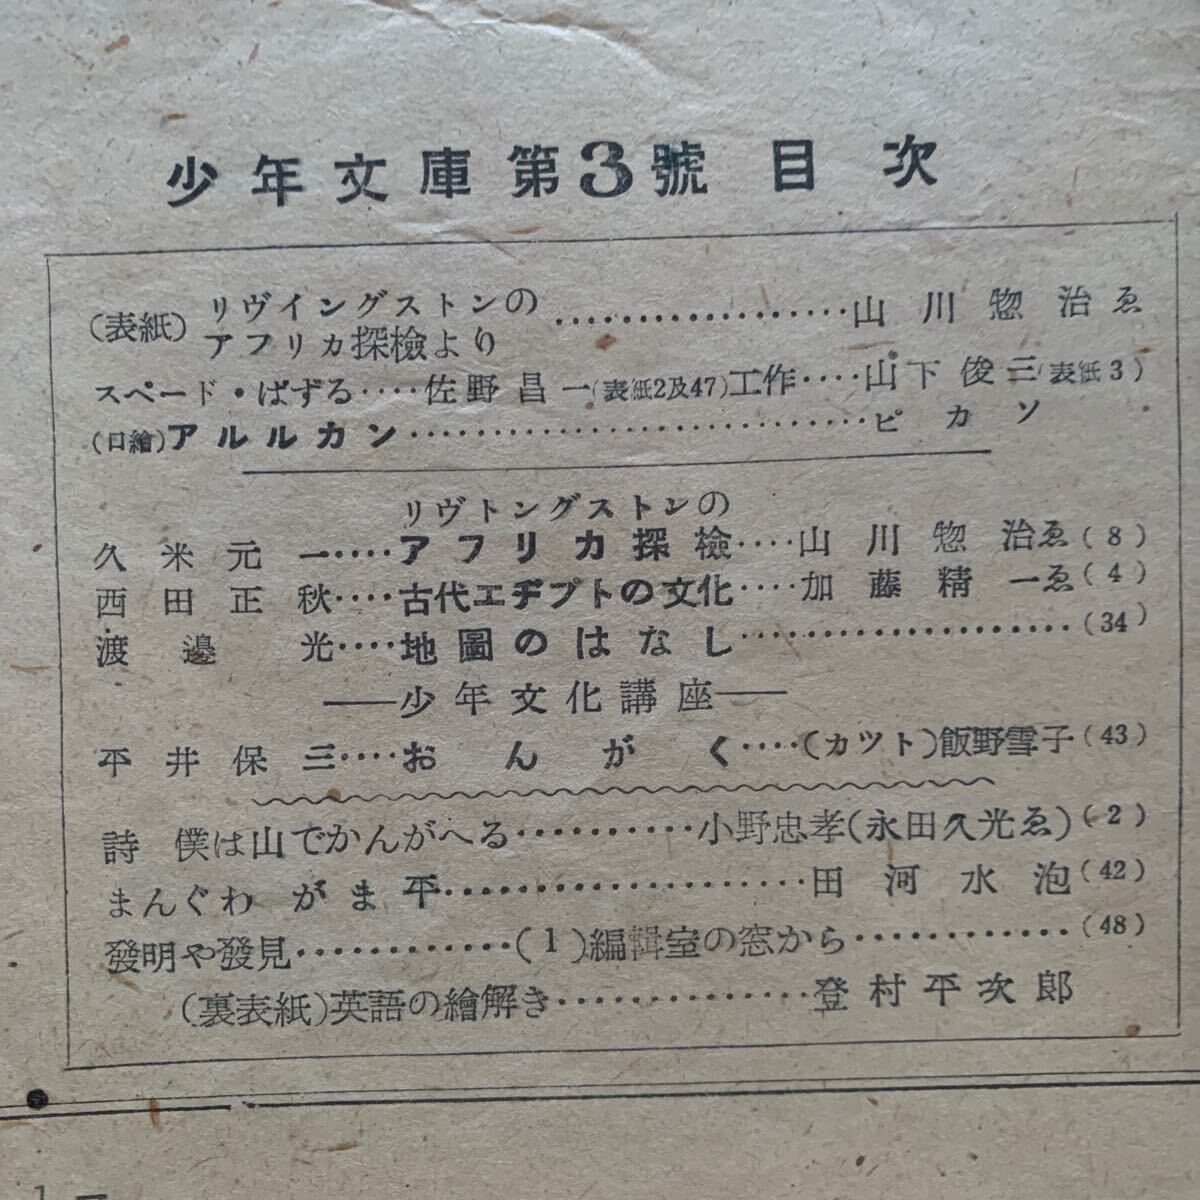 少年文庫第3號 目次
(表紙) リヴイングストンの
アフリカ探檢より ‥‥‥‥‥‥ 山川惣治ゑ
スペード・ぱずる‥‥佐野昌一(表紙2及47)工作‥‥山下俊三(表紙3)
(口繪)アルルカン‥‥‥‥‥‥‥‥‥‥ピカソ
リヴトングストンの
久米元一‥‥アフリカ探檢‥‥山川惣治ゑ(8)
西田正秋‥‥古代エヂプトの文化‥‥加藤精一ゑ(4)
渡邊光‥‥地圖のはなし‥‥‥‥‥‥‥‥(34)
——少年文化講座——
平井保三‥‥おんがく‥‥(カツト)飯野雪子(43)
詩 僕は山でかんがへる‥‥‥‥‥小野忠孝(永田久光ゑ)(2)
まんぐわ がま平‥‥‥‥‥‥‥‥‥田河水泡(42)
發明や發見‥‥‥‥‥‥(1)編輯室の窓から‥‥‥‥‥‥(48)
(裏表紙)英語の繪解き‥‥‥‥‥‥登村平次郎
1 —